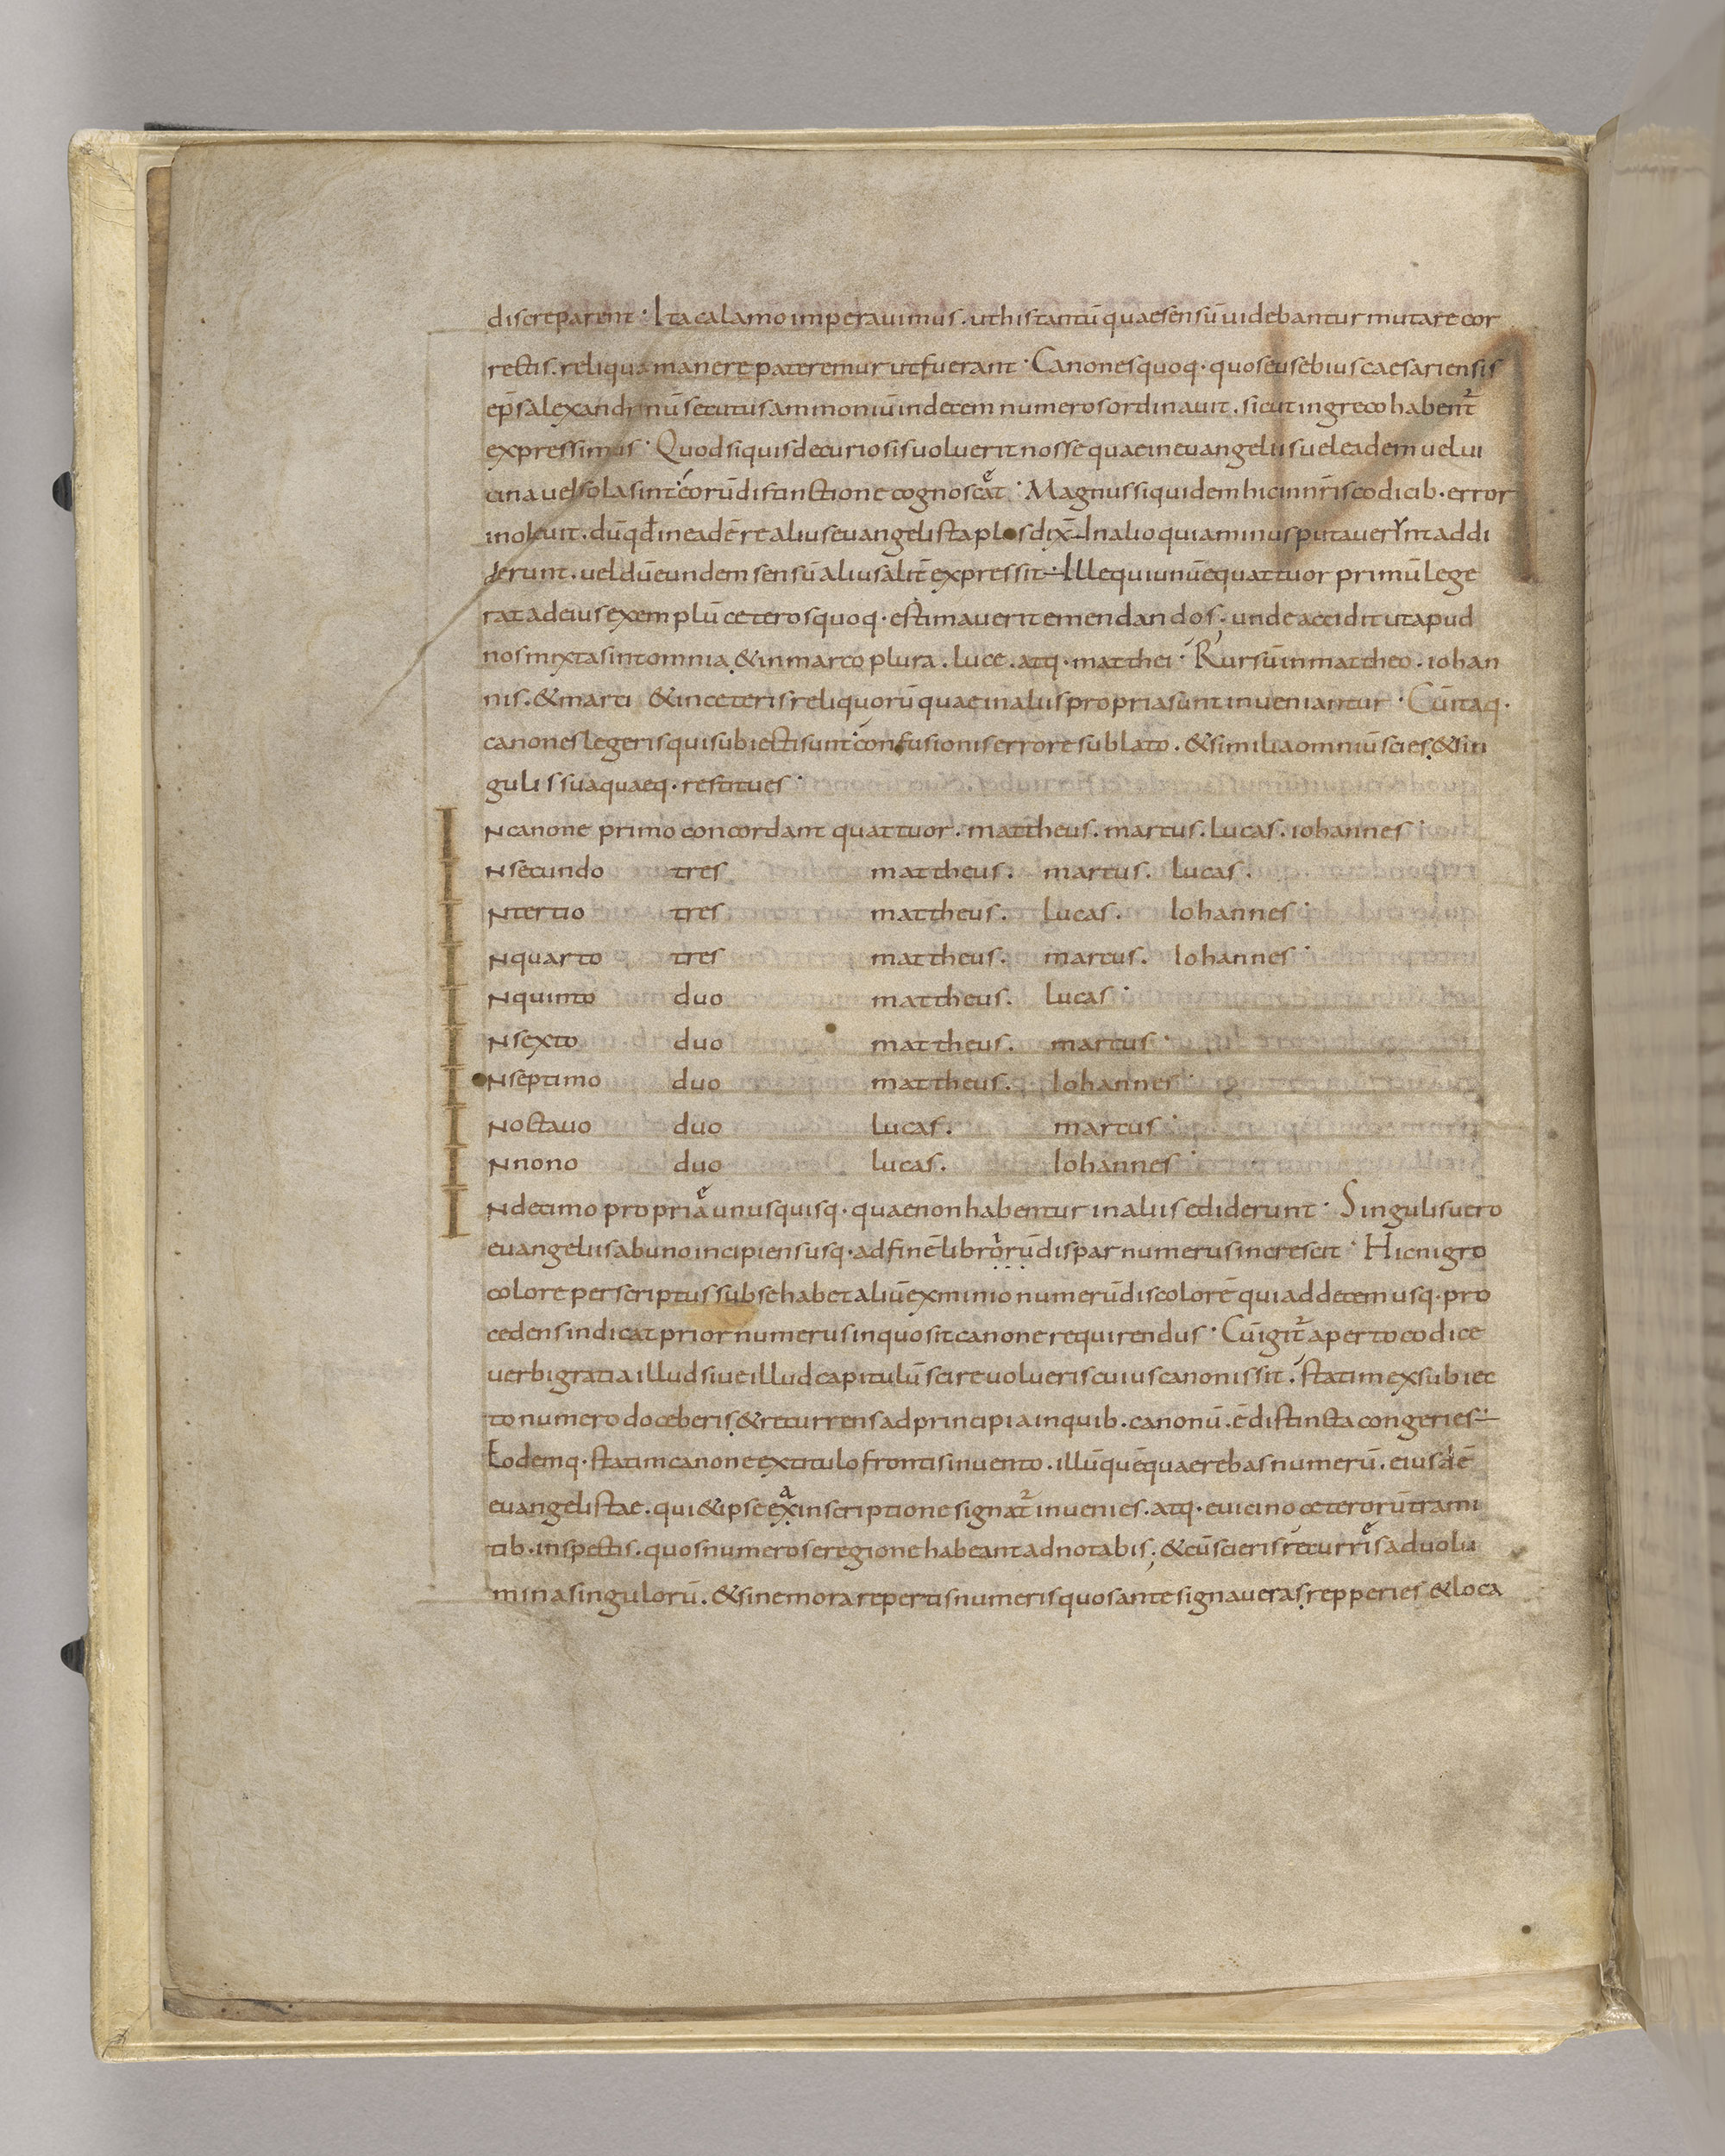 discreparent · Ita calamo imperauimus . ut his tantū quae sensū uidebantur mutare cor
rectis . reliqua manere pateremur ut fuerant · Canones quoq · quos eusebius caesariensis
ep̄s alexandrinū secutus ammoniū in decem numeros ordinauit . sicut in greco habent̄
expressimus · Quod si quis de curiosis uoluerit nosse quae in euangeliis uel eadem uel ui
cina uel sola sint eorū distinctione cognoscat · Magnus siquidem hic in nr̄is codicib · error
inoleuit . dū qđ in eadē re alius euangelista plus dix̄ In alio quia minus putauerint addi
derunt . uel dū eundem sensū alius alit̄ expressit · Ille qui unū e quattuor primū lege
rat ad eius exemplū ceteros quoq · estimauerit emendandos ; unde accidit ut apud
nos mixta sint omnia & in marco plura . luce . atq · matthei · Rursū in mattheo . iohan
nis . & marci & in ceteris reliquorū quae in aliis propria sunt inueniantur · Cū itaq ·
canones legeris qui subiecti sunt confusionis errore sublato . & similia omniū scies & sin
gulis sua quaeq · restitues ·
IN canone primo concordant quattuor . mattheus . marcus . lucas . iohannes ·
IN secundo tres mattheus . marcus . lucas .
IN tertio tres mattheus . lucas . Iohannes ·
IN quarto tres mattheus . marcus . Iohannes ·
IN quinto duo mattheus . lucas ·
IN sexto duo mattheus . marcus ·
IN septimo duo mattheus . Iohannes ·
IN octauo duo lucas . marcus ·
IN nono duo lucas . Iohannes ·
IN decimo propria unusquisq · quae non habentur in aliis ediderunt · Singulis uero
euangeliis ab uno incipiens usq · ad finē librorū dispar numerus increscit · Hic nigro
colore perscriptus sub se habet aliū ex minio numerū discolorē qui ad decem usq · pro
cedens indicat prior numerus in quo sit canone requirendus · Cū igit̄ aperto codice
uerbi gratia illud siue illud capitulū scire uolueris cuius canonis sit . statim ex subiec
to numero doceberis & recurrens ad principia in quib . canonū . ē distincta congeries
Eodemq · statim canone ex titulo frontis inuento . illū quē quaerebas numerū . eiusdē
euangelistae . qui & ipse ex inscriptione signat̄ inuenies . atq · e uicino ceterorū trami
tib · inspectis . quos numeros e regione habeant adnotabis ; & cū scieris recurris ad uolu
mina singulorū . & sine mora repertis numeris quos ante signaueras repperies & loca